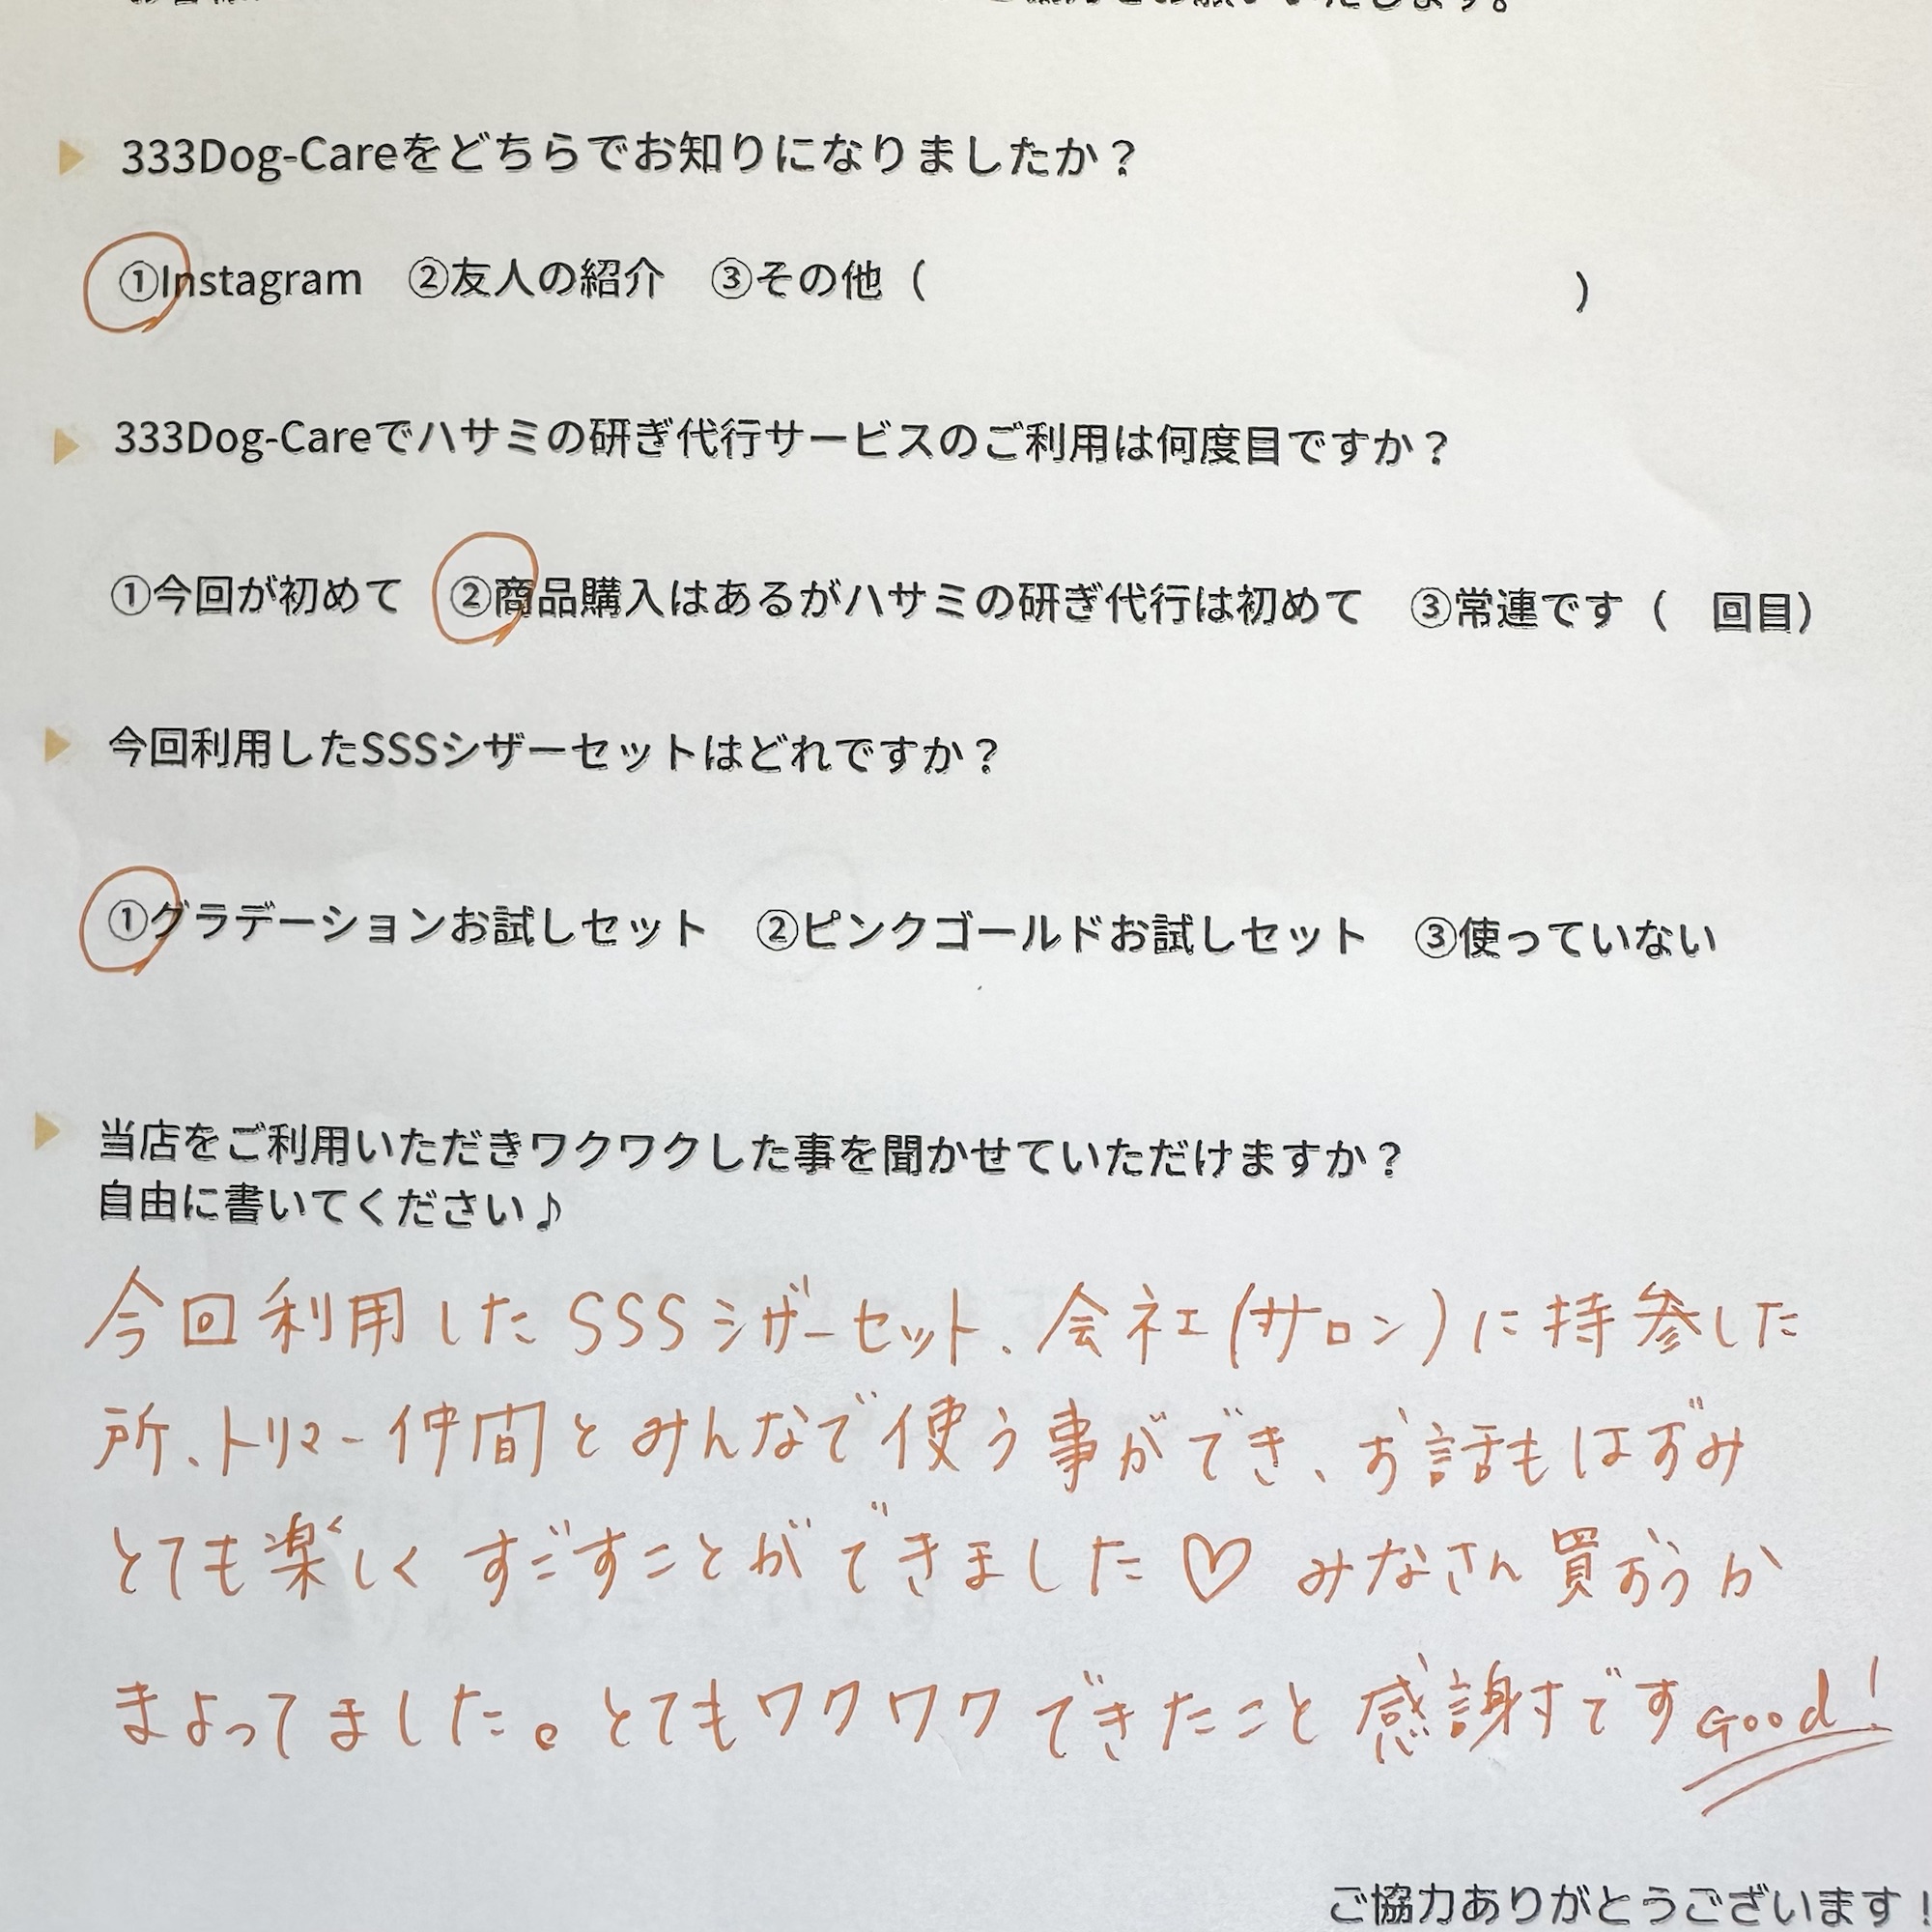 ご協力をお願いいたします。
333Dog-Careをどちらでお知りになりましたか？
①Instagram ②友人の紹介 ③その他（ ）
333Dog-Careでハサミの研ぎ代行サービスのご利用は何度目ですか？
①今回が初めて ②商品購入はあるがハサミの研ぎ代行は初めて ③常連です（ 回目）
今回利用したSSSシザーセットはどれですか？
①グラデーションお試しセット ②ピンクゴールドお試しセット ③使っていない
当店をご利用いただきワクワクした事を聞かせていただけますか？
自由に書いてください♪
今回利用したSSSシザーセット、会社(サロン)に持参した
所、トリマー仲間とみんなで使う事ができ、お話もはずみ
とても楽しくすごすことができました♡ みなさん買おうか
まよってました。とてもワクワクできたこと感謝です Good!
ご協力ありがとうございます！